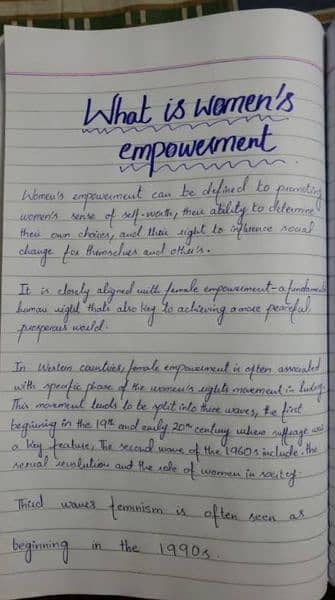 What is women's
empowerment
Women's empowerment can be defined to promoting
women's sense of self-worth, their ability to determine
their own choices, and their right to influence social
change for themselves and other's.
It is closely aligned with female empowerment - a fundamental
human right thats also key to achieving a more peaceful,
prosperous world.
In Western countries, female empowerment is often associated
with specific phase of the women's rights movement in history.
This movement tends to be split into three waves, the first
beginning in the 19th and early 20th century where suffrage was
a key feature, The second wave of the 1960s include the
sexual revolution and the role of women in society.
Third waves feminism is often seen as
beginning in the 1990s.